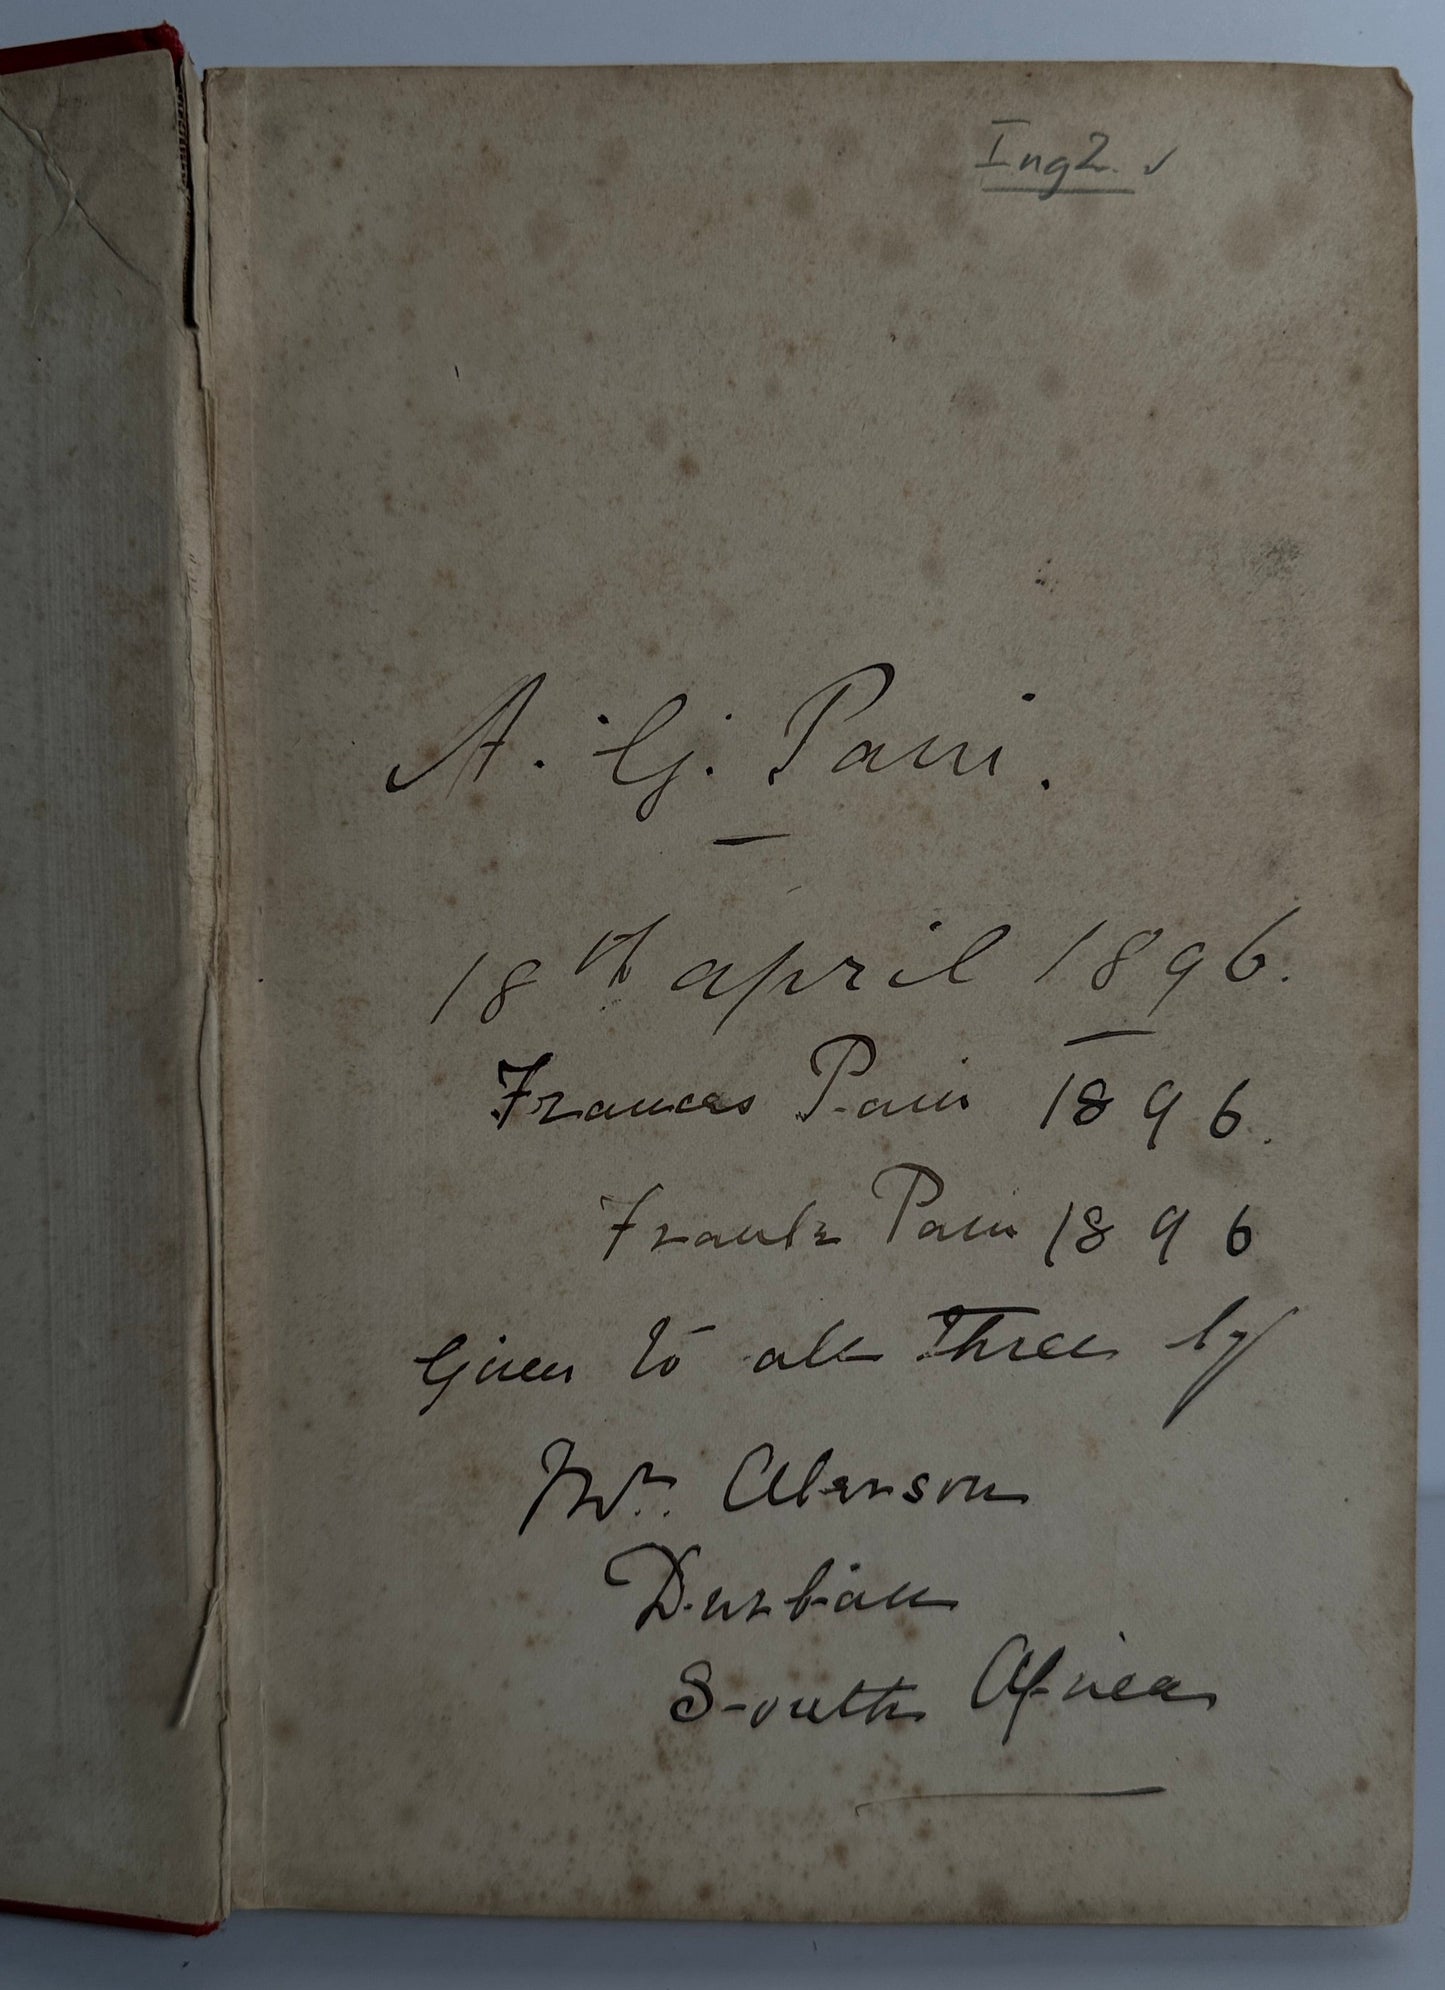 Ing2. ✓
A. G. Pain.
18th april 1896.
Frances Pain 1896.
Frank Pain 1896
Given to all three by
Mr. Alerson
Durban
South Africa